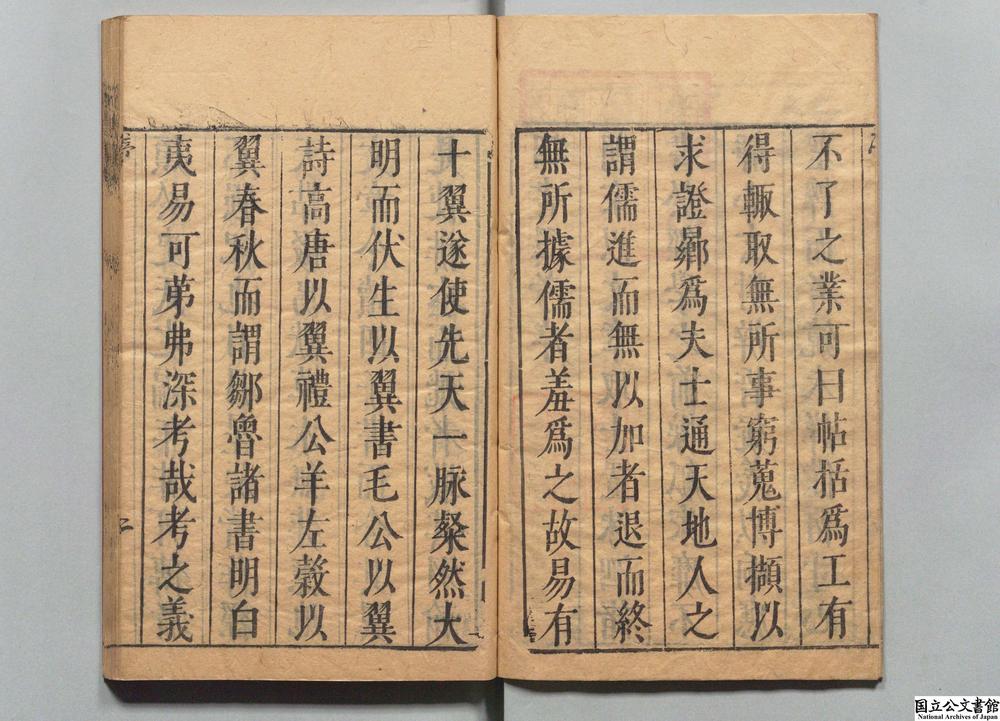 不了之業可曰帖括爲工有
得輙取無所事窮蒐博擷以
求證曏爲夫士通天地人之
謂儒進而無以加者退而終
無所據儒者羞爲之故易有
十翼遂使先天一脉粲然大
明而伏生以翼書毛公以翼
詩高唐以翼禮公羊左榖以
翼春秋而謂鄒魯諸書明白
夷易可苐弗深考哉考之義
序
二
国立公文書館
National Archives of Japan